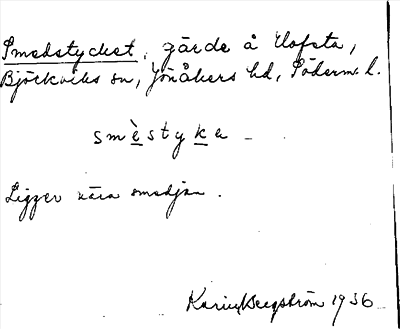 Smedstycket, gärde å Hofsta,
Björkviks sn, Jönåkers hd, Söderm. l.
smèstyke –
Ligger nära smedjan.
Karin Bergström 1936